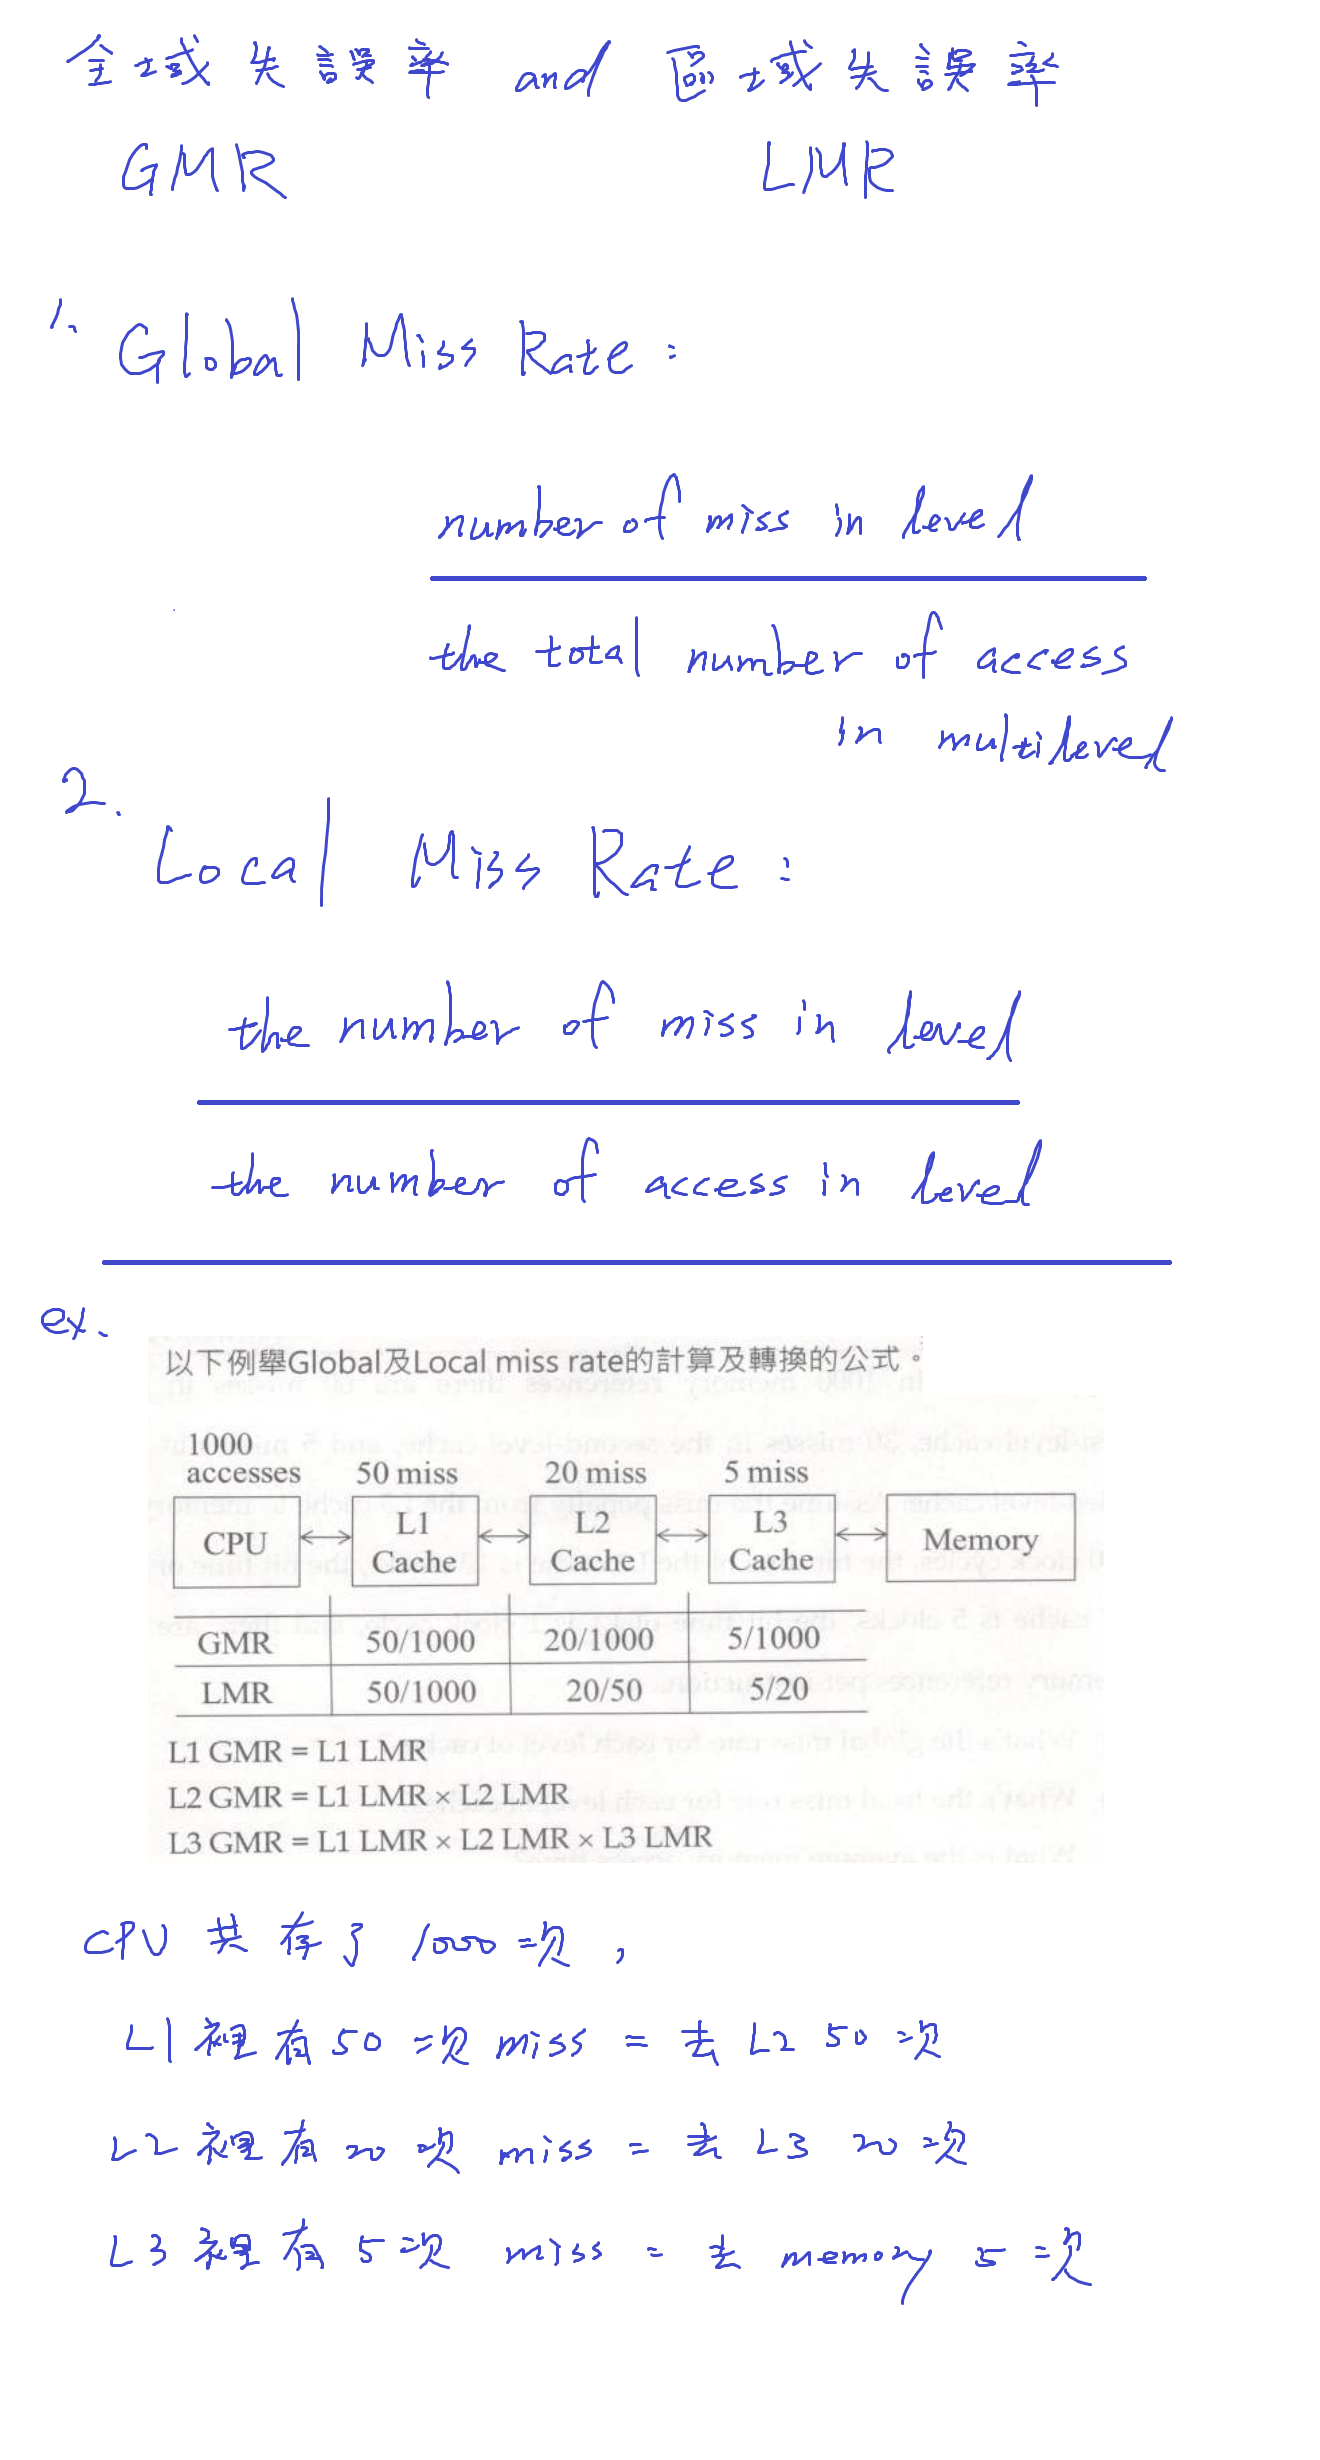 全域失誤率 and 區域失誤率
GMR LMR
1. Global Miss Rate:
number of miss in level
the total number of access
in multilevel
2.
Local Miss Rate:
the number of miss in level
the number of access in level
ex.
以下例舉Global及Local miss rate的計算及轉換的公式。
1000
accesses 50 miss 20 miss 5 miss
CPU L1 Cache L2 Cache L3 Cache Memory
GMR 50/1000 20/1000 5/1000
LMR 50/1000 20/50 5/20
L1 GMR = L1 LMR
L2 GMR = L1 LMR × L2 LMR
L3 GMR = L1 LMR × L2 LMR × L3 LMR
CPU 共存了 1000次,
L1裡有50次miss = 去L2 50次
L2裡有20次miss = 去L3 20次
L3裡有5次miss = 去memory 5次